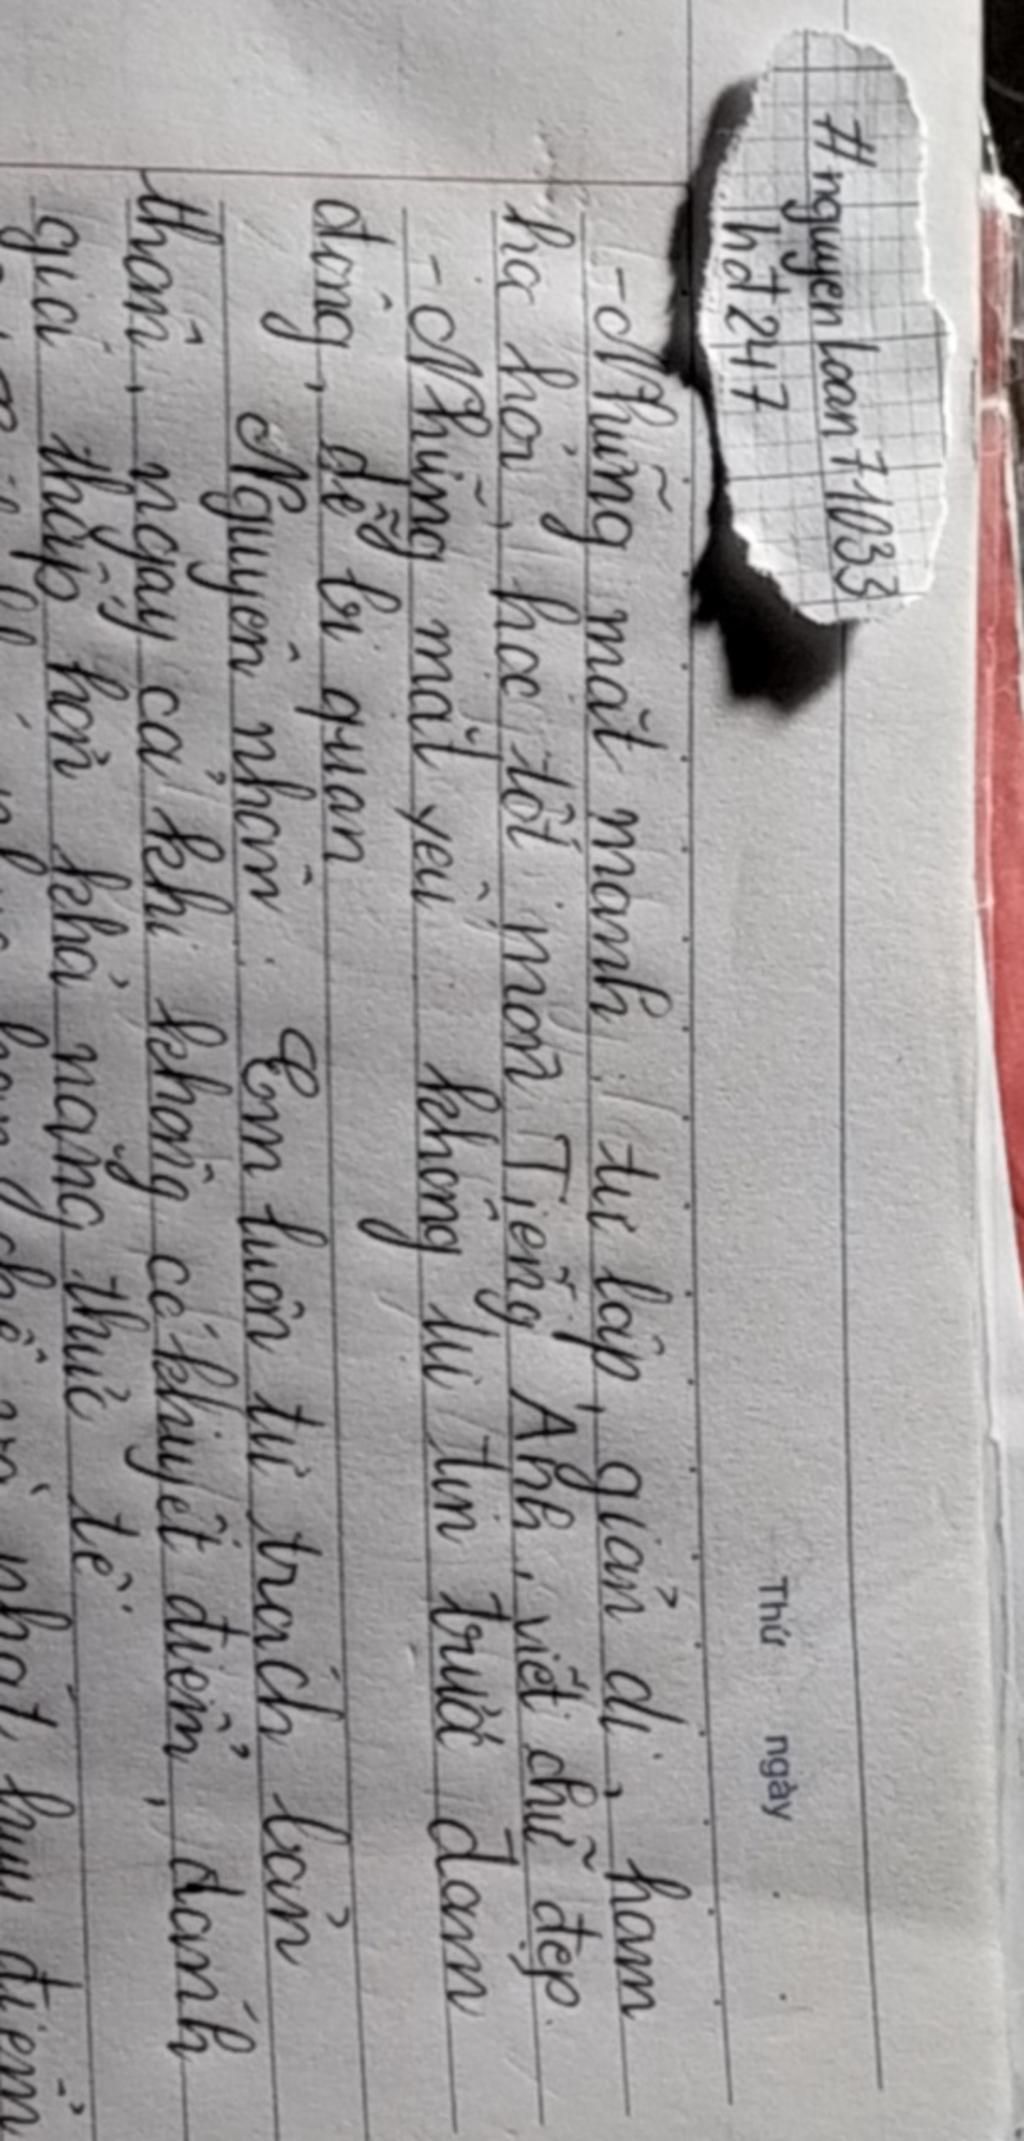 # nguyenloan71033
hđ247
Thứ ngày
- Những mặt mạnh : tự lập, giản dị, ham
học hỏi, học tốt môn Tiếng Anh, viết chữ đẹp.
- Những mặt yếu không tự tin trước đám
đông, dễ bi quan
Nguyên nhân : Em luôn tự trách bản
thân, ngay cả khi không có khuyết điểm, đánh
giá thấp hơn khả năng thực tế.
điểm